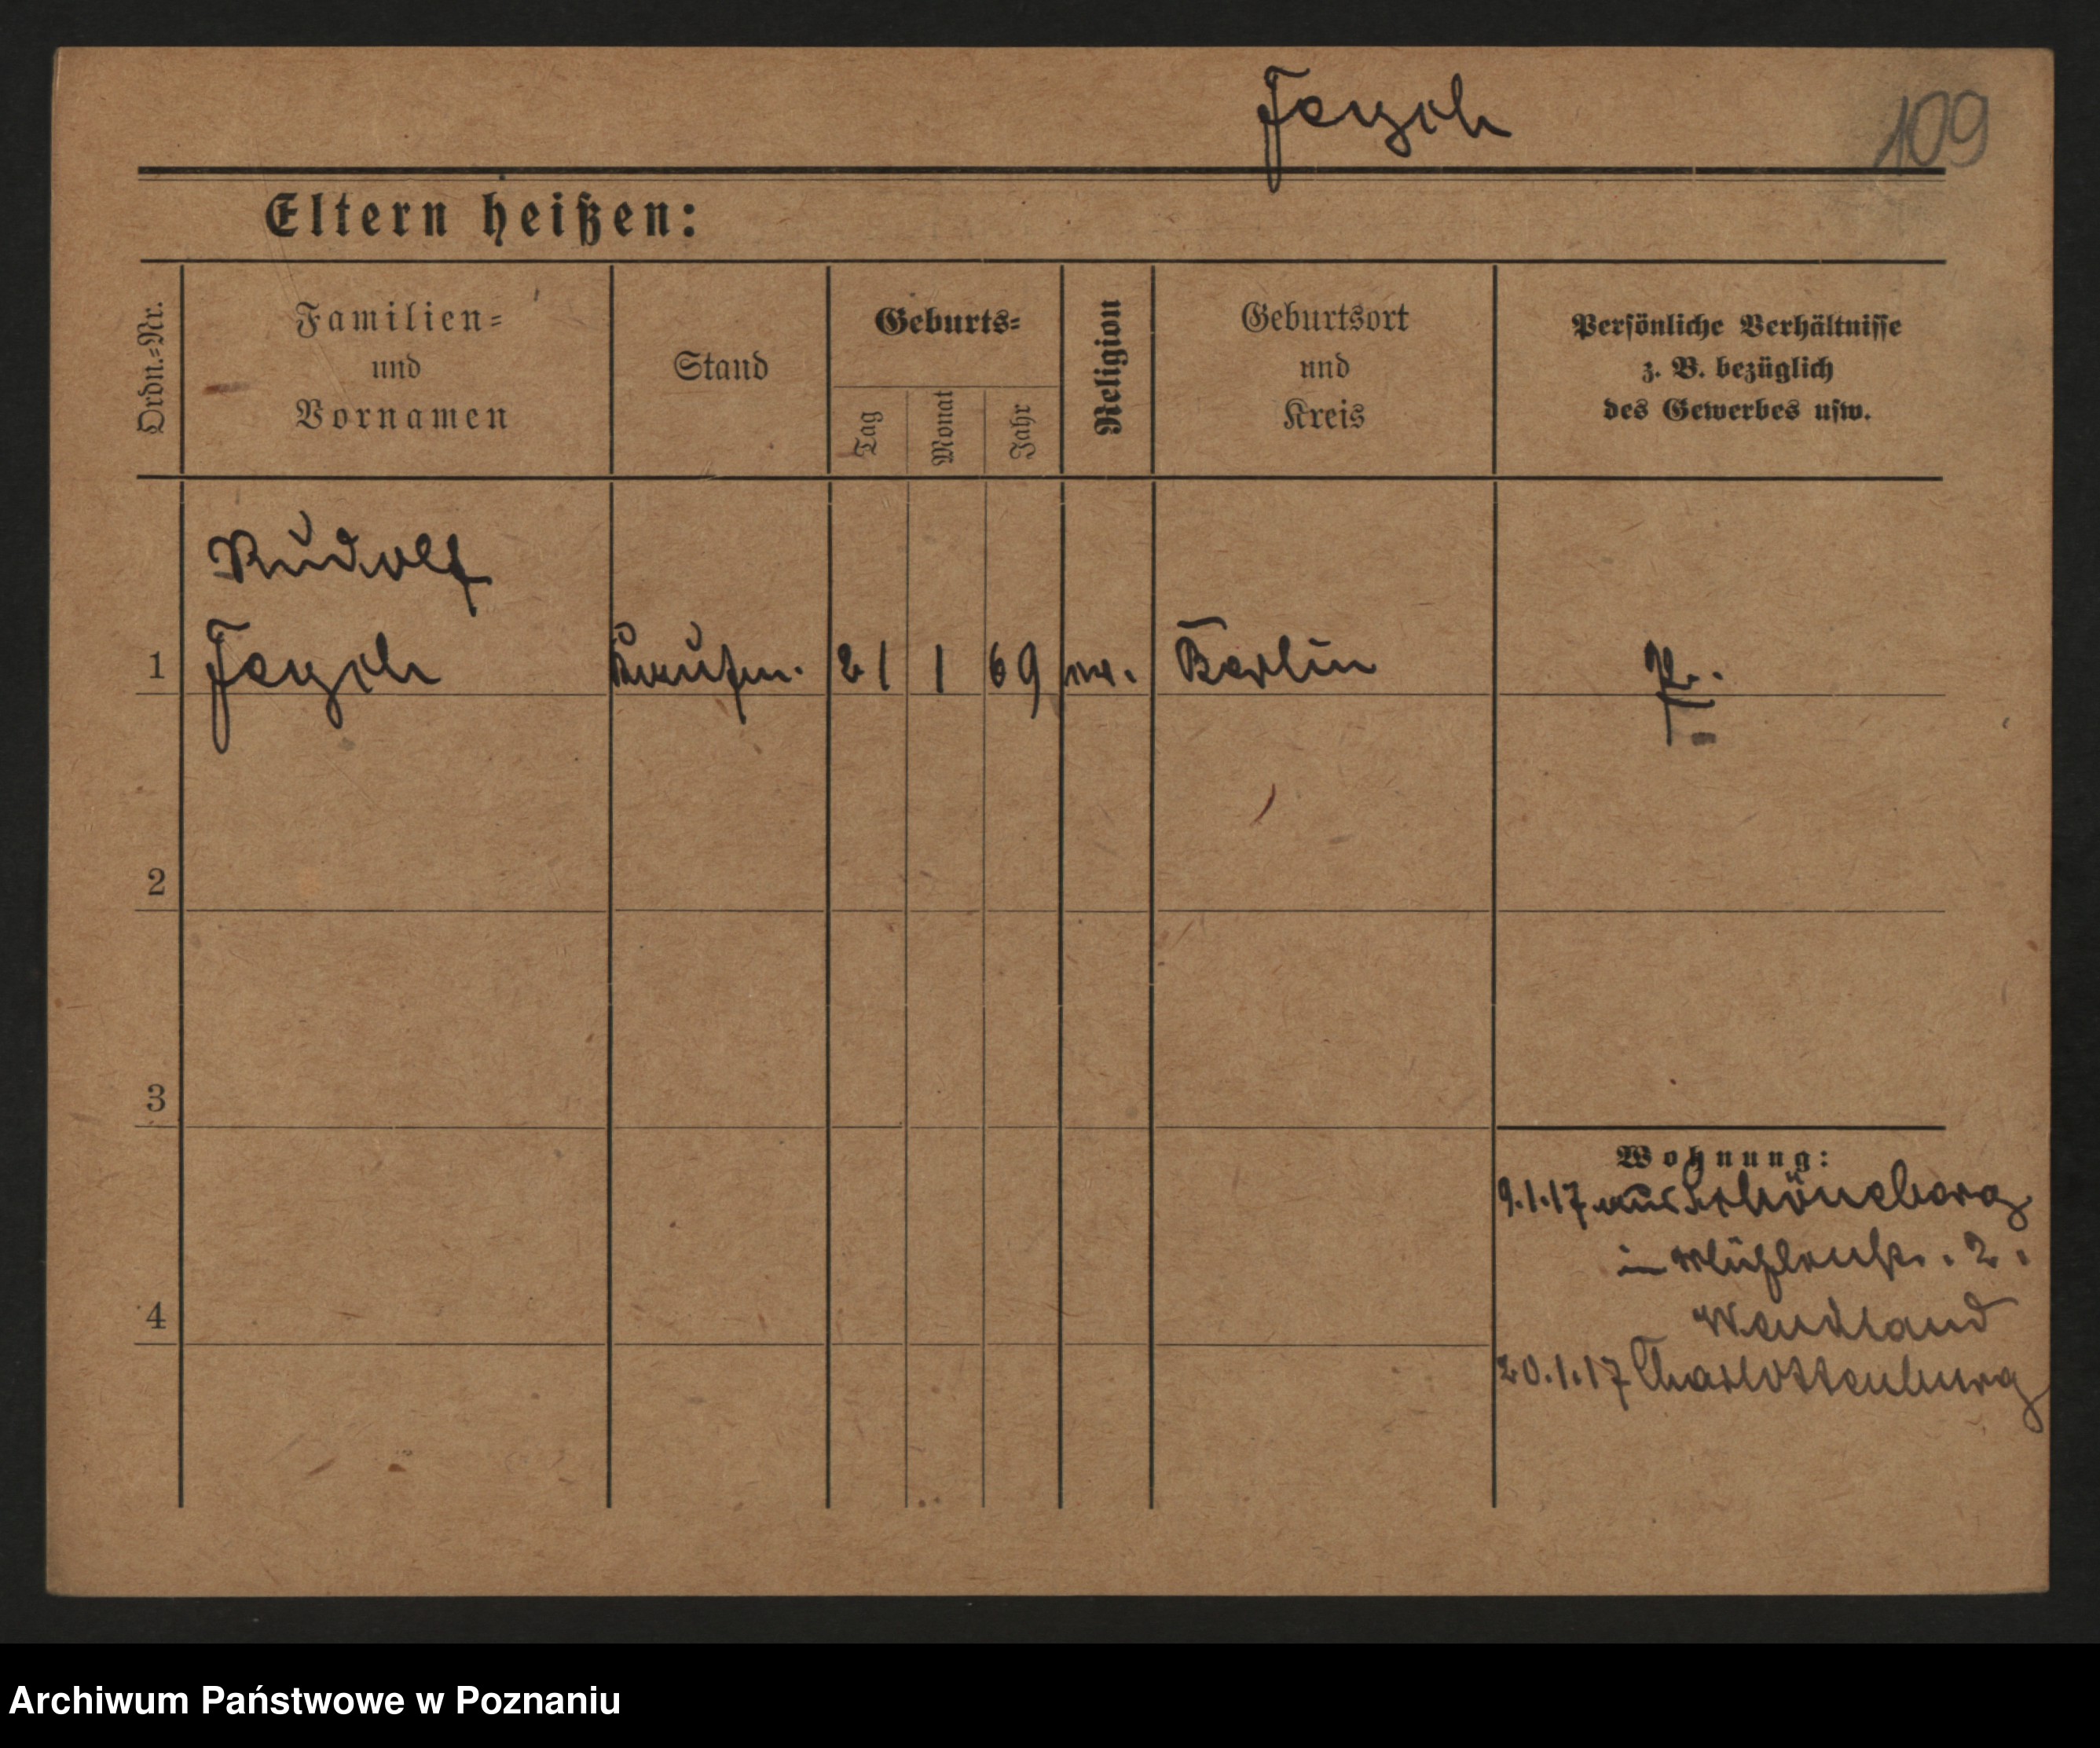 Jeysch
109
Eltern heißen:
Ordn.=Nr.
Familien=
und
Vornamen
Stand
Geburts=
Tag
Monat
Jahr
Religion
Geburtsort
und
Kreis
Persönliche Verhältnisse
z. B. bezüglich
des Gewerbes usw.
Rudolf
1 Kaufm. 21 1 69 Berlin
2
3
4
Wohnung:
9.1.17 aus Schöneberg
in Mühlenstr. 2.
Wendland
20.1.17 Charlottenburg
Archiwum Państwowe w Poznaniu